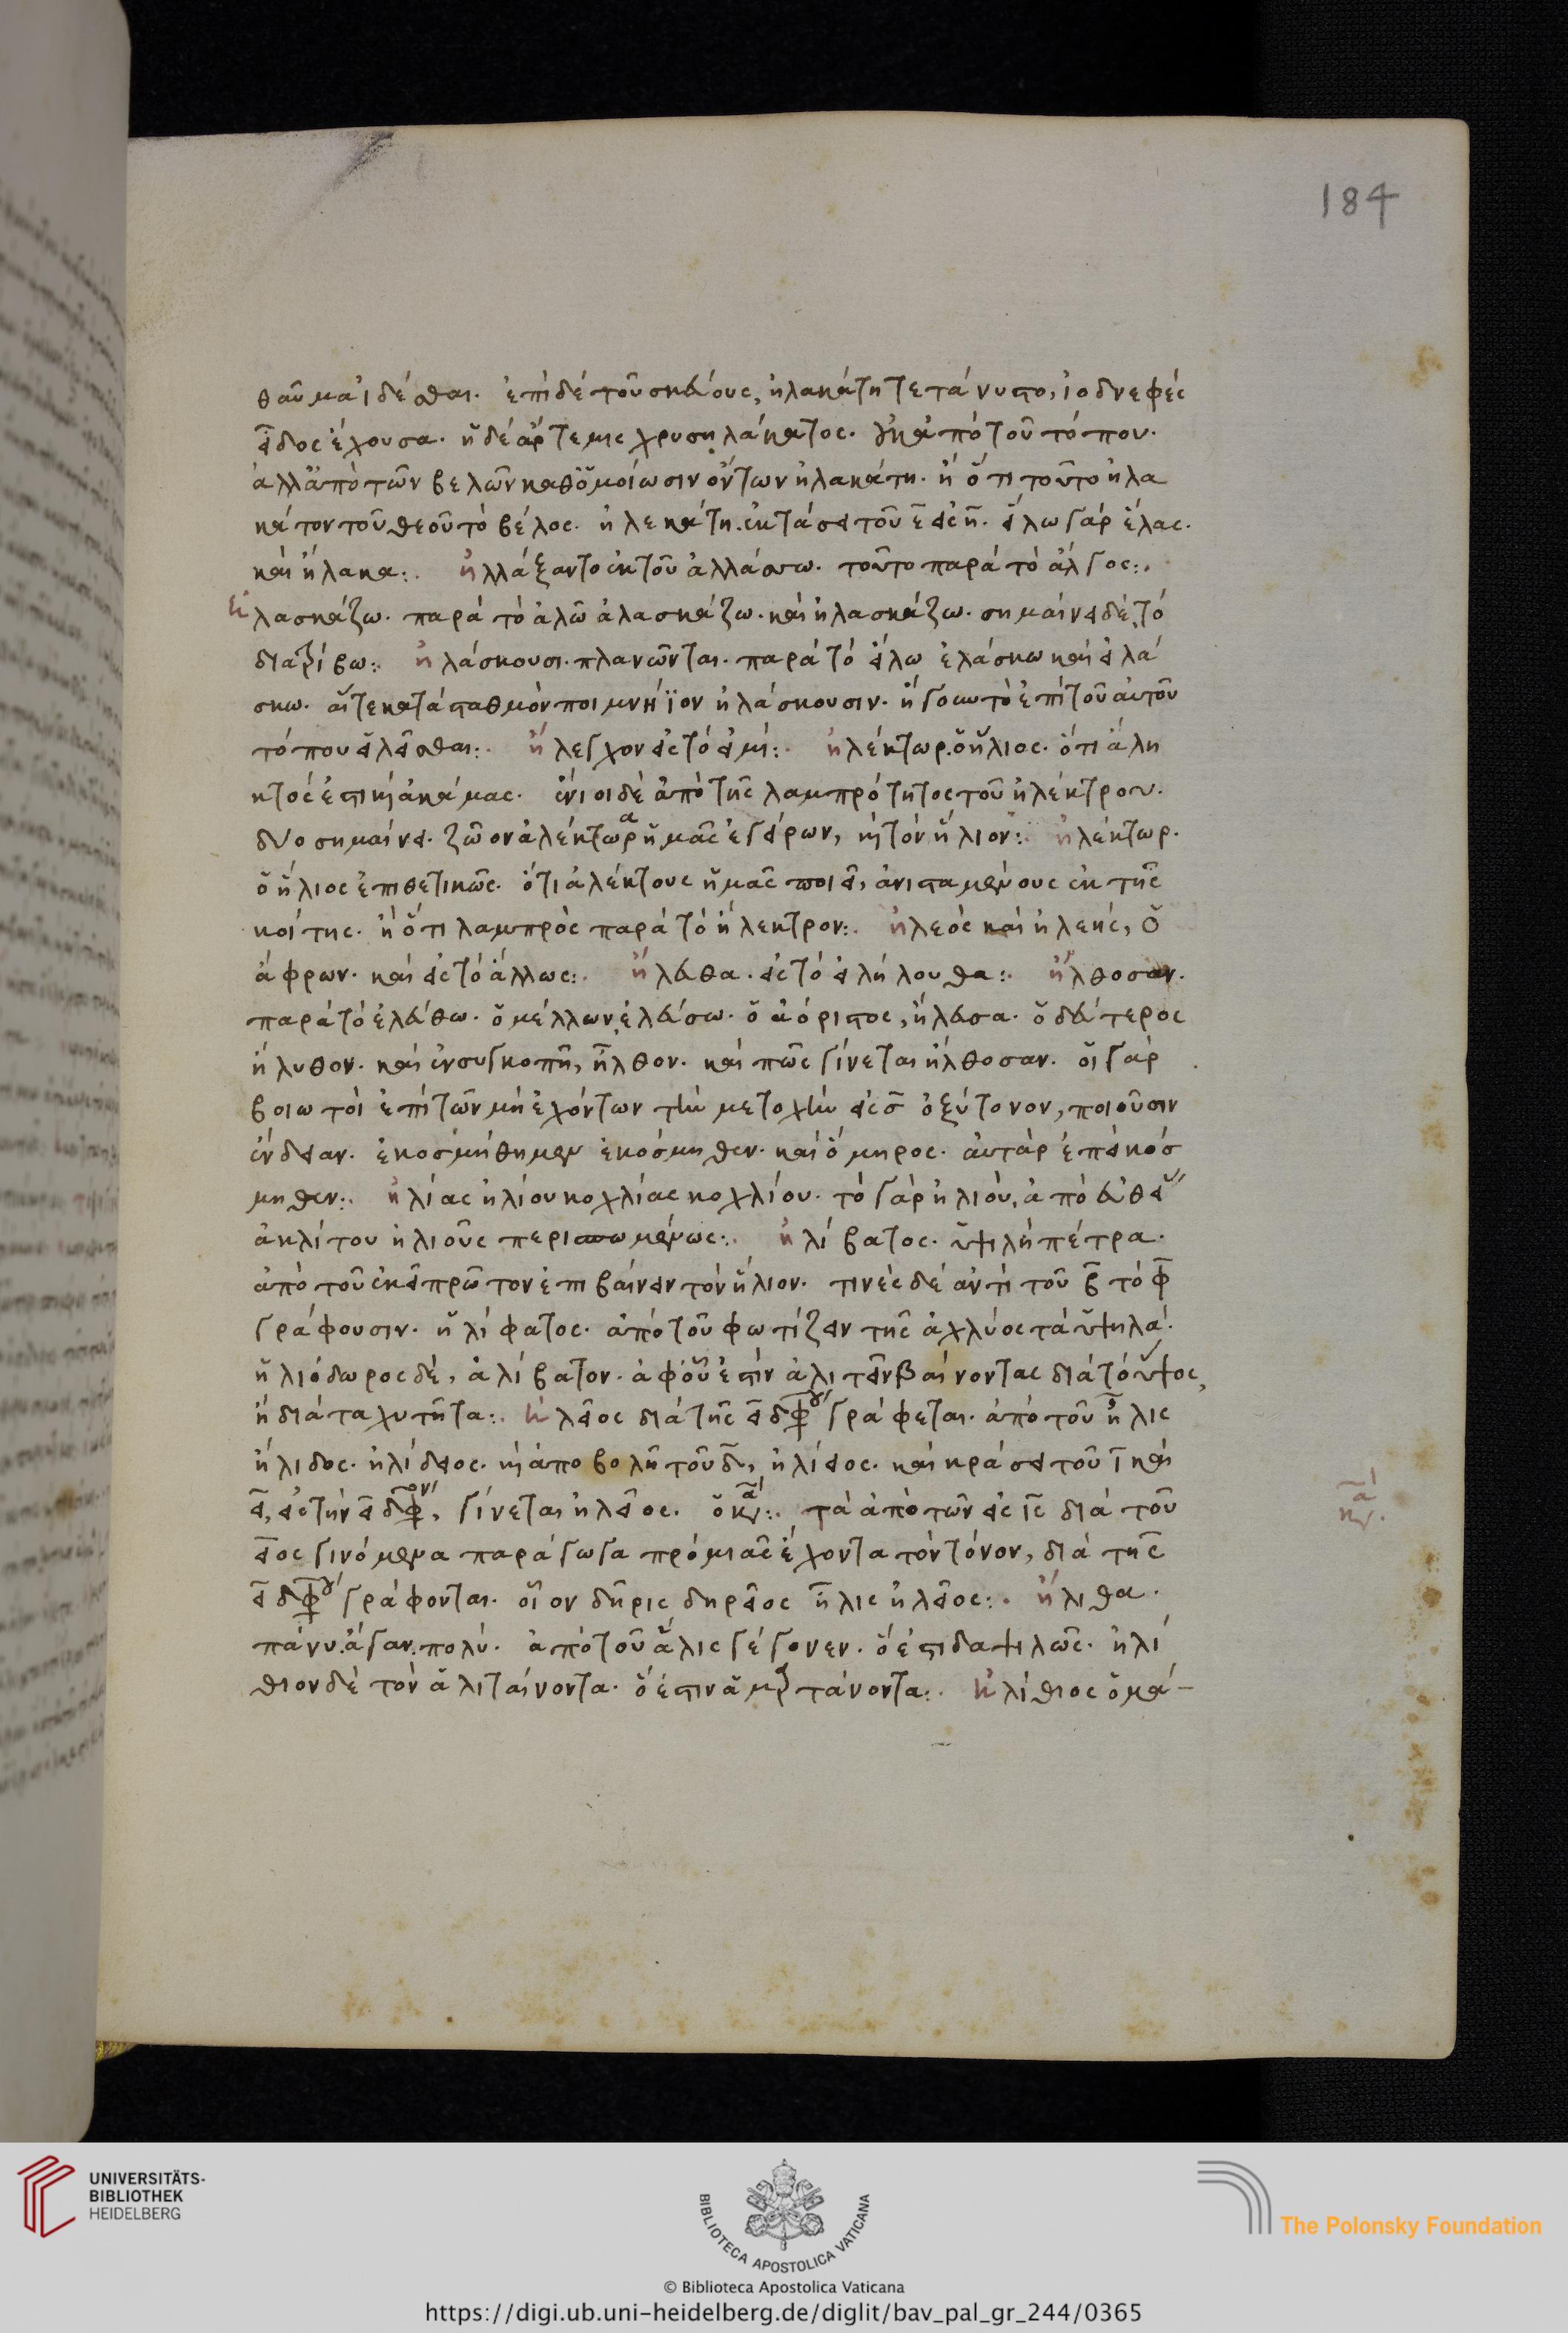 184
θαῦμα ἰδέσθαι. ἐπὶ δὲ τοῦ σκεύους, ἠλακάτη τετάνυστο, ἰοδνεφὲς
εἶδος ἔχουσα. ἡ δὲ ἄρτεμις χρυσηλάκατος. οὐκ ἀπὸ τοῦ τόπου.
ἀλλ' ἀπὸ τῶν βελῶν καθ' ὁμοίωσιν ὄντων ἠλακάτη. ἢ ὅτι τοῦτο ἠλα
κάτον τοῦ θεοῦ τὸ βέλος. ἠλεκάτη. ἐκτάσει τοῦ ε̄ εἰς η̄. ἕλω γὰρ ἕλας.
καὶ ἤλακα:. ἠλλάξαντο ἐκ τοῦ ἀλλάσσω. τοῦτο παρὰ τὸ ἄλγος:.
ἠλασκάζω. παρὰ τὸ ἀλῶ ἀλασκάζω. καὶ ἠλασκάζω. σημαίνει δὲ τὸ
διατρίβω:. ἠλάσκουσι. πλανῶνται. παρὰ τὸ εἴλω ἐλάσκω καὶ εἰλά
σκω. αἵτε κατὰ σταθμὸν ποιμνήϊον ἠλάσκουσιν. ἤγουν τὸ ἐπὶ τοῦ αὐτοῦ
τόπου εἰλεῖσθαι:. ἤλεγχον εἰς τὸ εἰμί:. ἠλέκτωρ. ὁ ἥλιος. ὅτι ἄλη
κτός ἐστι καὶ ἀκάμας. ἔνιοι δὲ ἀπὸ τῆς λαμπρότητος τοῦ ἠλέκτρου.
δύο σημαίνει. ζῶον ἀλέκτωρα ἡμᾶς ἐγείρων, καὶ τὸν ἥλιον:. ἠλέκτωρ.
ὁ ἥλιος ἐπιθετικῶς. ὅτι ἀλέκτους ἡμᾶς ποιεῖ, ἀνισταμένους ἐκ τῆς
κοίτης. ἢ ὅτι λαμπρὸς παρὰ τὸ ἤλεκτρον:. ἠλεὸς καὶ ἠλεής, ὁ
ἄφρων. καὶ εἰς τὸ ἄλλως:. ἤλευθα. εἰς τὸ εἰλήλουθα:. ἤλθοσαν.
παρὰ τὸ ἐλεύθω. ὁ μέλλων, ἐλεύσω. ὁ ἀόριστος, ἤλευσα. ὁ δεύτερος
ἤλυθον. καὶ ἐν συγκοπῆ, ἦλθον. καὶ πῶς γίνεται ἤλθοσαν. οἱ γὰρ
βοιωτοὶ ἐπὶ τῶν μὴ ἐχόντων τὴν μετοχὴν εἰς σ̄ ὀξύτονον, ποιοῦσιν
ἔνδειαν. ἐκοσμήθημεν ἐκόσμηθεν. καὶ ὅμηρος. αὐτὰρ ἐπεὶ κόσ
μηθεν:. ἠλίας ἠλίου κοχλίας κοχλίου. τὸ γὰρ ἠλιού, ἀπὸ εὐθεί
ἀκλίτου ἠλιοῦς περισπωμένως:. ἠλίβατος. ὑψιλὴ πέτρα.
ἀπὸ τοῦ ἐκεῖ πρῶτον ἐπιβαίνειν τὸν ἥλιον. τινὲς δὲ ἀντὶ τοῦ β̄ τὸ φ̄
γράφουσιν. ἡλίφατος. ἀπὸ τοῦ φωτίζειν τῆς ἀχλύος τὰ ὑψηλά.
ἡλιόδωρος δὲ, ἀλίβατον. ἀφ' οὗ ἐστὶν ἀλιτεῖν βαίνοντας διὰ τὸ ὕψος,
ἢ διὰ ταχυτῆτα:. ἠλεῖος διὰ τῆς ε̄ι διφθόγγου γράφεται. ἀπὸ τοῦ ἦλις
ἤλιδος. ἠλίδειος. καὶ ἀποβολῆ τοῦ δ̄, ἠλίειος. καὶ κράσει τοῦ ῑ καὶ
ε̄ι, εἰς τὴν ε̄ι δίφθογγον, γίνεται ἠλεῖος. ὁ κανών:. τὰ ἀπὸ τῶν εἰς ῑς διὰ τοῦ
ειος γινόμενα παράγωγα πρὸ μιᾶς ἔχοντα τὸν τόνον, διὰ τῆς
ε̄ι διφθόγγου γράφονται. οἷον δῆρις δηρεῖος ἦλις ἠλεῖος:. ἤλιθα.
πάνυ. ἄγαν. πολύ. ἀπὸ τοῦ ἅλις γέγονεν. ὅ ἐστι δαψιλῶς. ἠλί
θιον δὲ τὸν ἀλιταίνοντα. ὅ ἐστιν ἁμαρτάνοντα:. ἠλίθιος ὁ μά-
UNIVERSITÄTS-
BIBLIOTHEK
HEIDELBERG
BIBLIOTECA APOSTOLICA VATICANA
The Polonsky Foundation
© Biblioteca Apostolica Vaticana
https://digi.ub.uni-heidelberg.de/diglit/bav_pal_gr_244/0365